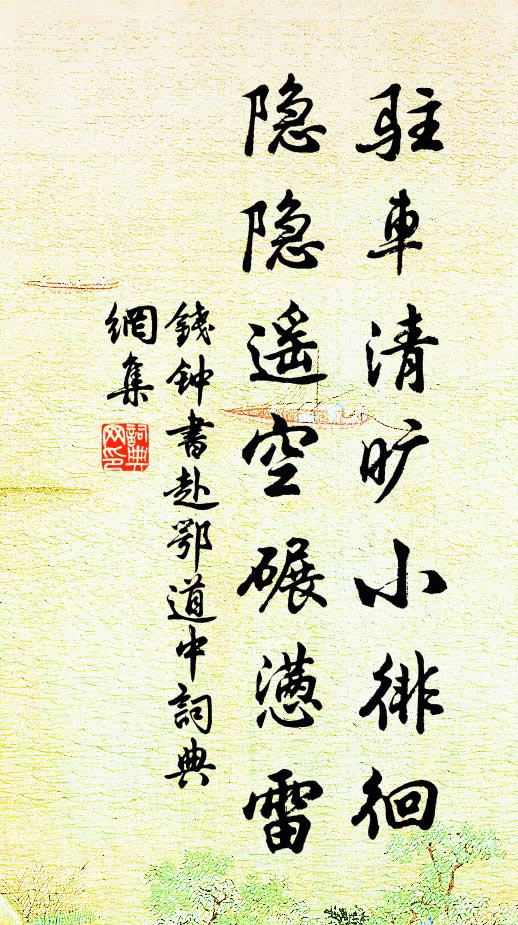 駐車清旷小徘徊
隐隐遥空碾懑雷
錢钟書赴鄂道中詞典
網集
詞典
网印